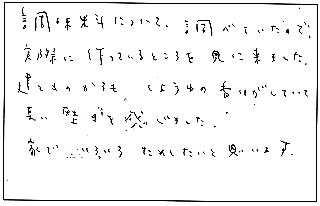 調味料について、調べていたので、
実際に作っているところを見に来ました。
建ものからも しょうゆの香りがしていて
長い歴史を感じました。
家でいろいろ ためしたいと思います。